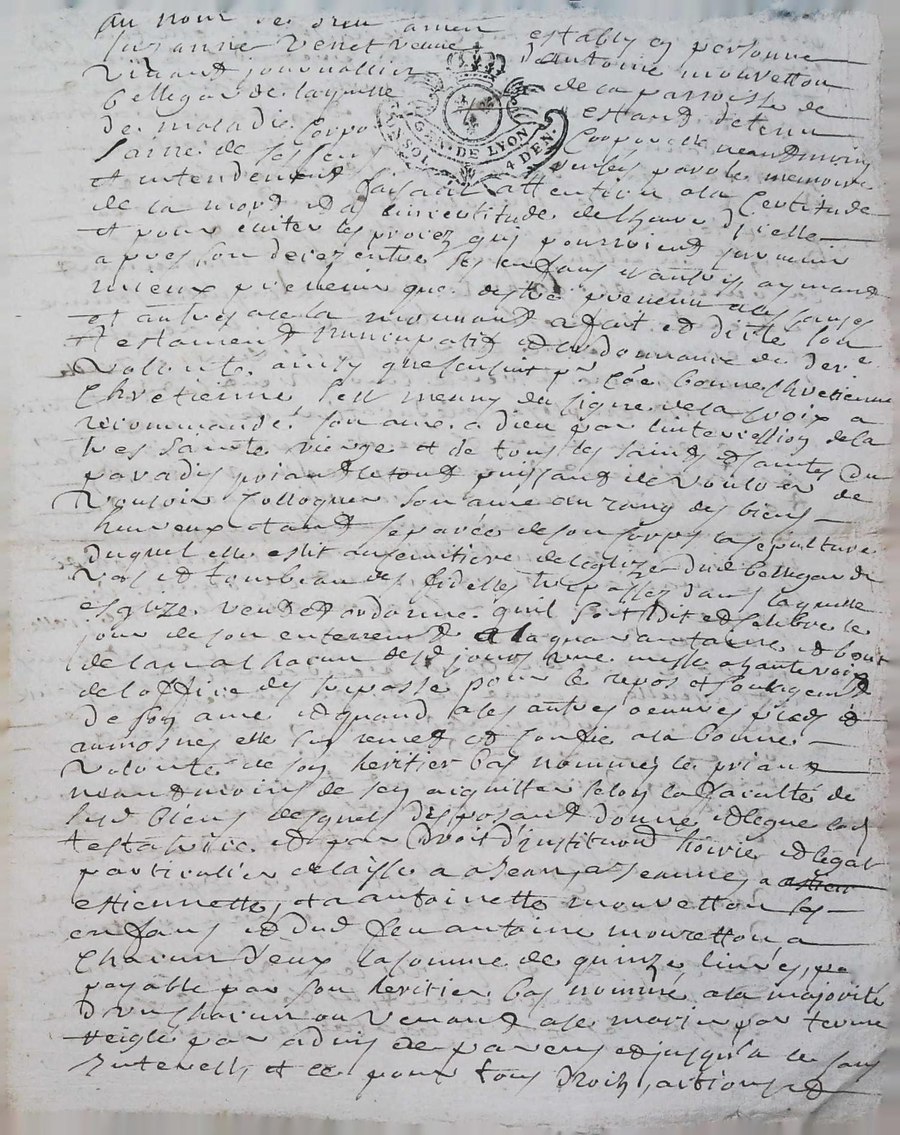 au nom de dieu amen
establye en personne
Suzanne Venet veuve d'antoine mouretton
vivant journallier de la parroisse de
bellegarde laquelle estand detenu
GEN. DE LYON
SOL. 4 DEN.
de maladie corporelle neandmoins
saine de ses sens veue parole memoire
et entendement faisant attention a la certitude
de la mort et a l'incertitude de lheure d'icelle
et pour eviter les procez qui pourroient survenir
apres son decez entre ses enfans aymant
mieux prevenir que destre prevenu
et autres a fait et dicte son
testament nuncupatif et ordonnance de derre
volonté, ainsy que sensuit pre comme bonne chretienne
sest munye du signe de la croix a
recommandé son ame a dieu par lintercession de la
tres sainte vierge et de tous les saints et saintes du
paradis priant le tout puissant de vouloir
colloquer son ame au rang des biens
heureux estand separée de son corps la sepulture
duquel elle eslit au cimitiere de leglize dud bellegarde
et tombeau des fidelles trepassez dans laquelle
esglize veut et ordonne quil soit dit et celebré le
jour de son enterrement a la quarantaine et bout
de lan a chacun desd jours une messe a haute voix
de loffice des trepassé pour le repos et soulagemt
de son ame et quand a ses autres oeuvres pies et
aumosnes elle sen remet et confie a la bonne
volonté de son heritier bas nommé le priant
neandmoins de sen aiquitter selon la faculté de
sesd biens desquels disposand donne et legue lad
testatrice et par droit d'institution hoirie et legat
particulier delaisse a a Jean, a Jeanne, a
estiennette, et a antoinette mouretton ses
enfans et dud feu antoine mouretton a
chacun d'eux la somme de quinze livres,
payable par son heritier bas nommé a la majorité
d'un chacun ou venand a se marier par terme
reiglé par advis de parens et jusqu'a ce sans
interests, et ce pour tous droits, actions et